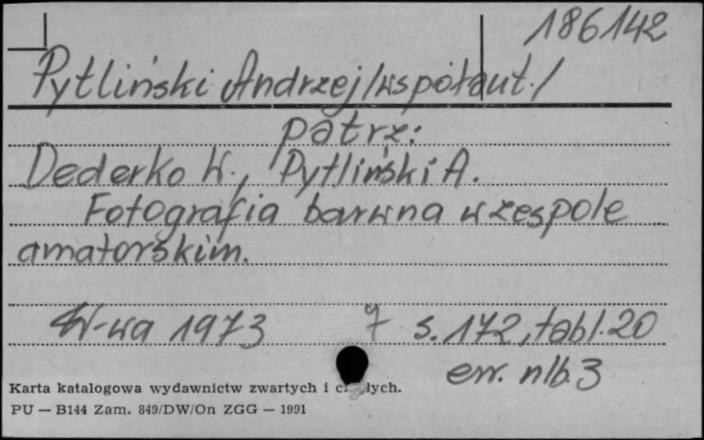 186142
Pytliński Andrzej /współaut./
patrz:
Dederko W., Pytliński A.
Fotografia barwna w zespole
amatorskim.
W-wa 1973 s. 172, tabl. 20
err. nlb. 3
Karta katalogowa wydawnictw zwartych i
PU — B144 Zam. 849/DW/On ZGG — 1991